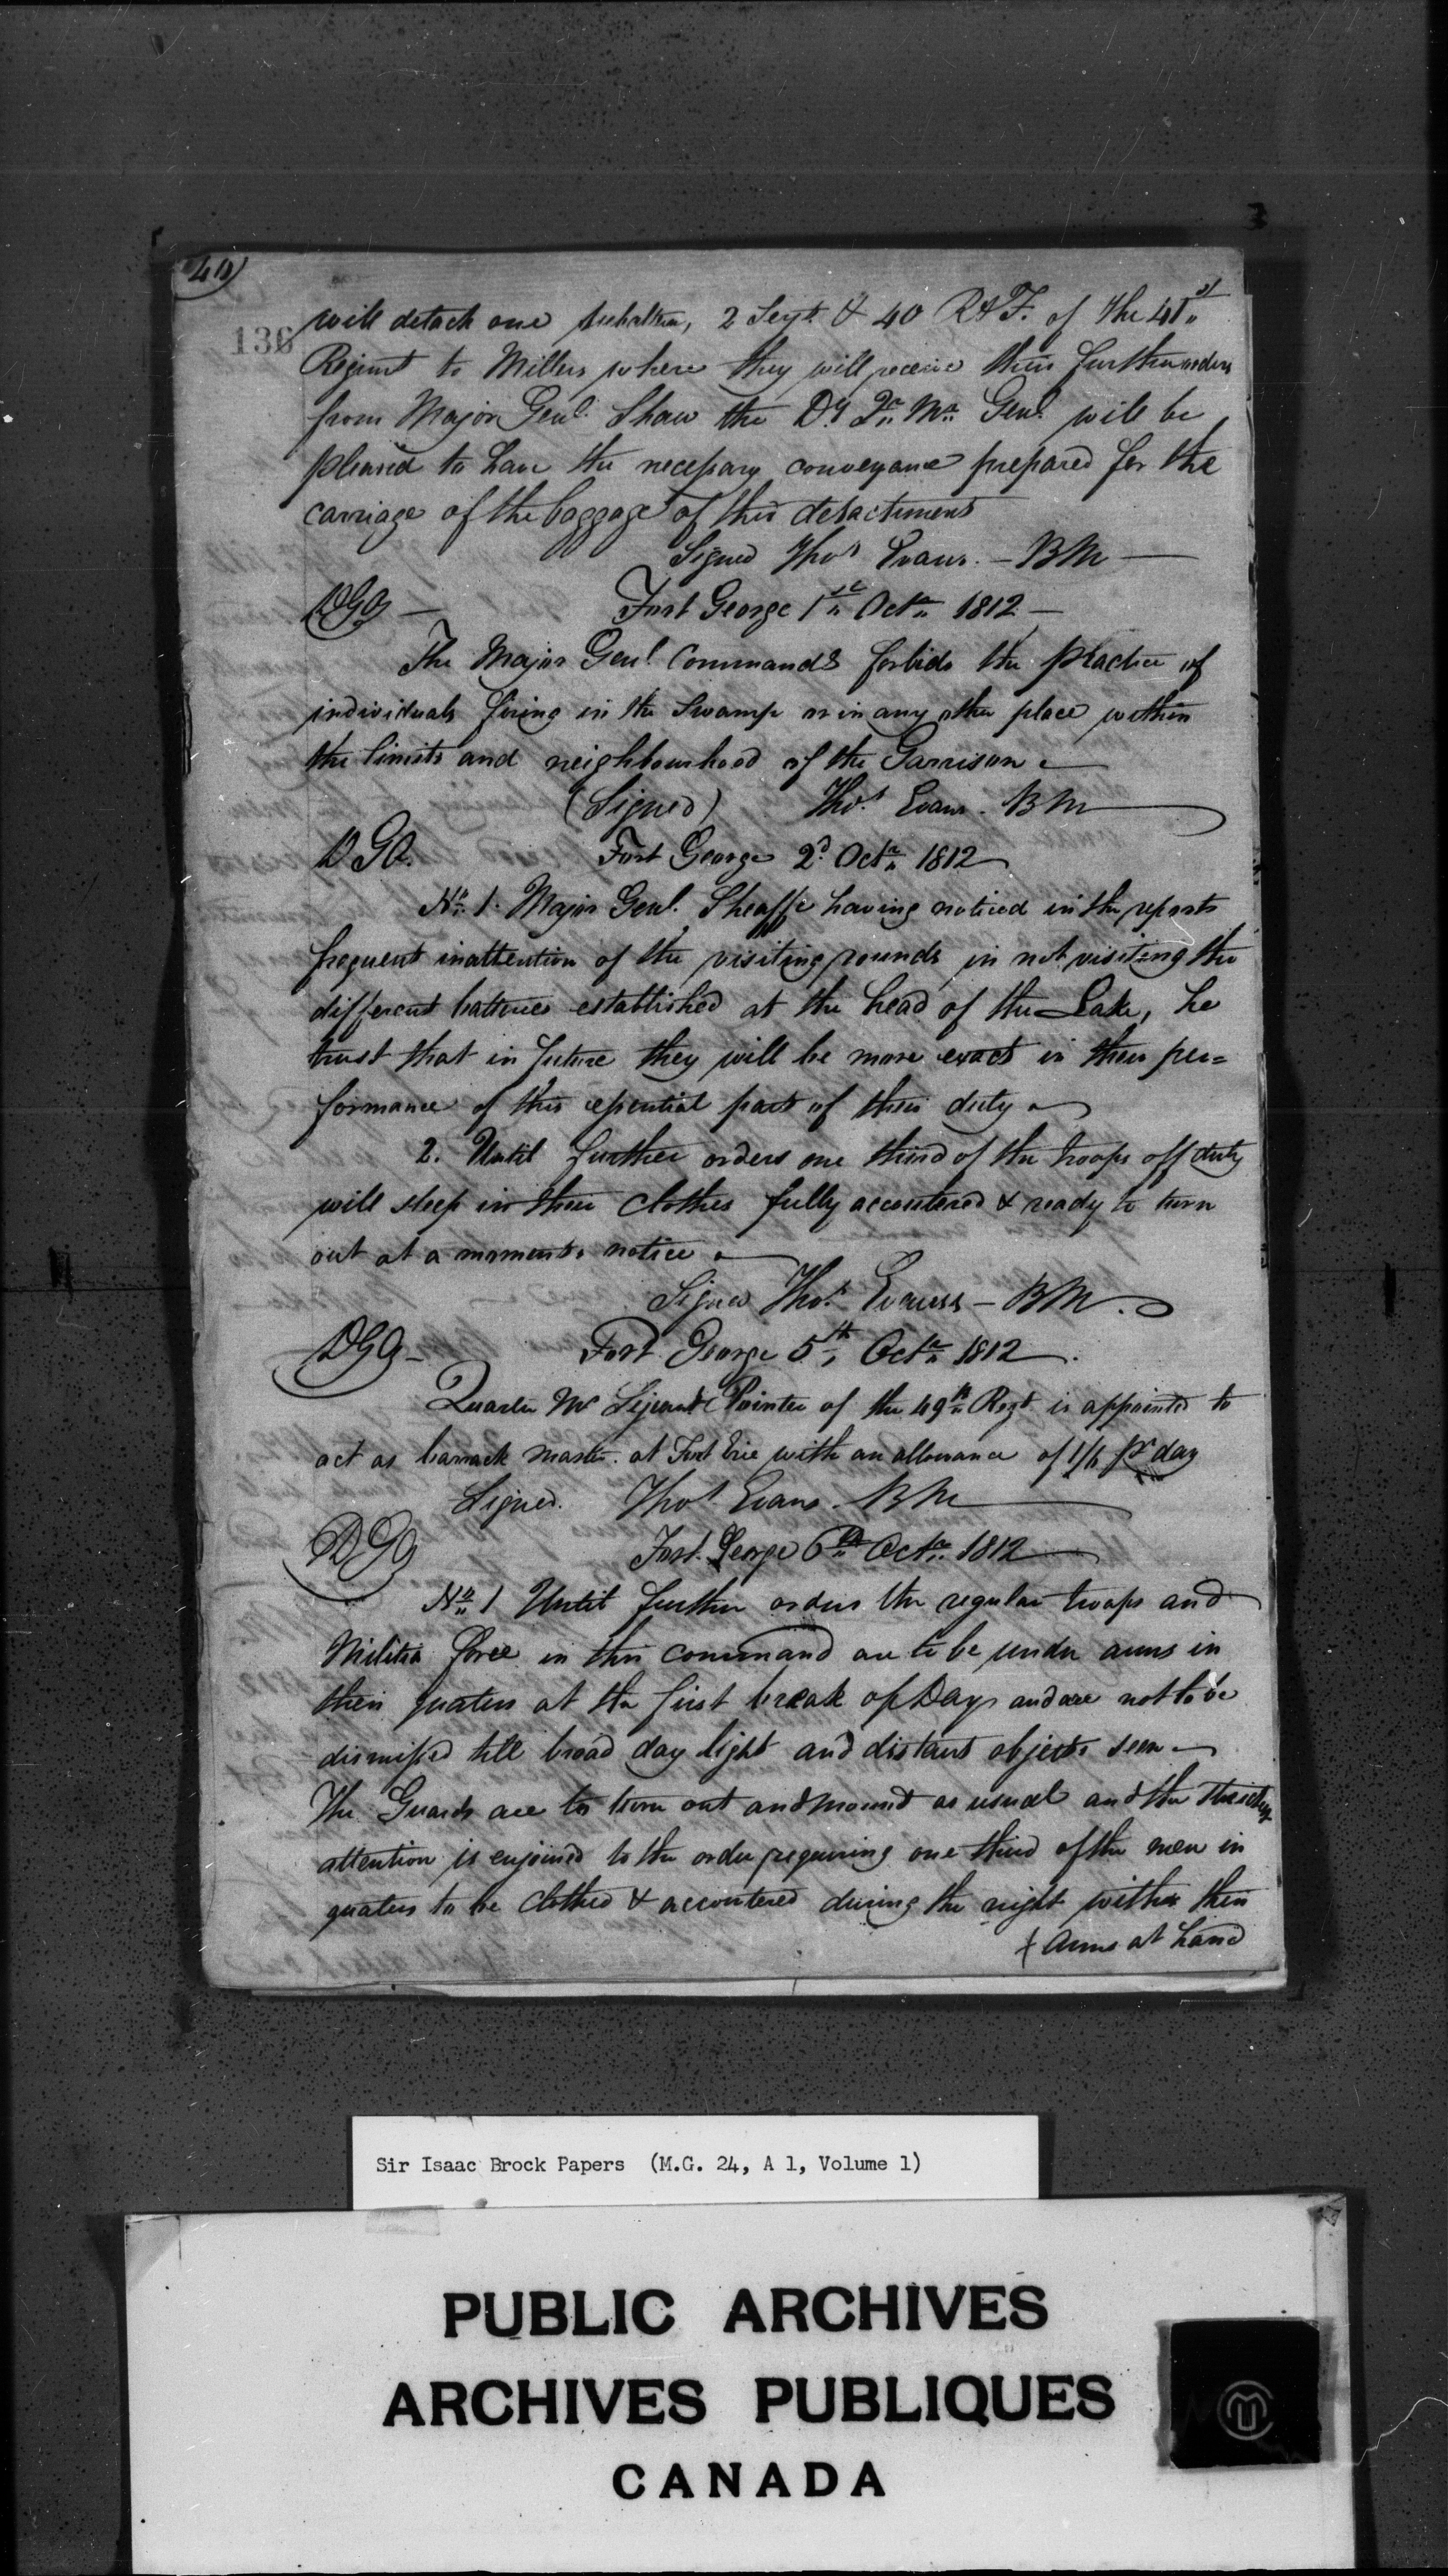 40)
136
will detach one subaltern, 2 Sergts & 40 R & F. of the 41st
Regiment to Millers where they will receive their further orders
from Major Genl. Shaw the Dy Qr. Mr. Genl. will be
pleased to have the necessary conveyance prepared for the
carriage of the baggage of this detachment
Signed Thos Evans. — BM —
DGO — Fort George 1st Octr 1812 —
The Major Genl. Commands forbids the practice of
individuals firing in the Swamp or in any other place within
the limits and neighbourhood of the Garrison
(Signed) Thos. Evans. BM
DGO. Fort George 2d Octr 1812
No. 1. Major Genl. Sheaffe having noticed in the reports
frequent inattention of the visiting rounds in not visiting the
different batteries established at the head of the Lake, he
trust that in future they will be more exact in their per=
formance of this essential part of their duty
2. Until further orders one third of the troops off duty
will sleep in their clothes fully accoutered & ready to turn
out at a moments notice
Signed Thos. Evans — BM.
DGO — Fort George 5th Octr 1812.
Quarter Mr Serjeant Pointer of the 49th Regt is appointed to
act as barrack master at Fort Erie with an allowance of 1/6 pr day
Signed. Thos Evans. BM
DGO Fort George 6th Octr. 1812
No. 1 Until further orders the regular troops and
Militia force in this command are to be under arms in
their quaters at the first break of Day and are not to be
dismissed till broad day light and distant objects seen —
The Guards are to turn out and mount as usual and the strictest
attention is enjoined to the order requiring one third of the men in
quaters to be clothed & accoutered during the night with their
+ Arms at hand
Sir Isaac Brock Papers (M.G. 24, A 1, Volume 1)
PUBLIC ARCHIVES
ARCHIVES PUBLIQUES
CANADA